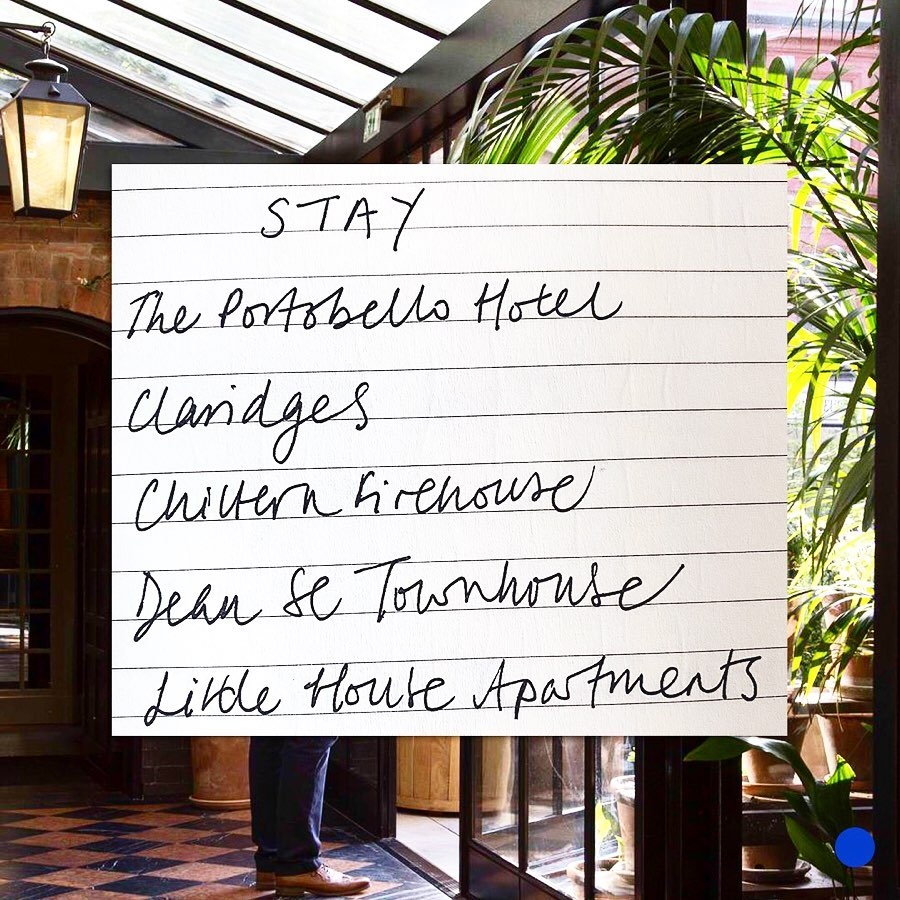 STAY
The Portobello Hotel
Claridges
Chiltern Firehouse
Dean St Townhouse
Little House Apartments